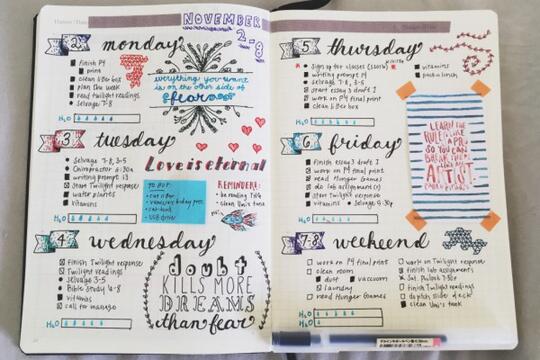 NOVEMBER
2-8
2
monday
finish P4
print
clean litter box
plan the week
read twilight readings
selvage 7-8
H2O
everything you want
is on the other side of
fear
3
tuesday
selvage 7-8, 3-5
Chiropractor
writing prompt 13
start Twilight response
water plants
vitamins
H2O
Love is eternal
TO BUY:
USB drive
REMINDERS:
4
wednesday
finish Twilight response
Twilight readings
selvage 3-5
Bible study
vitamins
call for massage
H2O
doubt
KILLS MORE
DREAMS
than fear
5
thursday
sign up for classes
writing prompt 14
selvage 7-8, 3-5
start essay 3 draft 2
work on P4 final print
clean litter box
vitamins
H2O
6
friday
finish essay 3 draft 2
work on P4 final print
read Hunger Games
do lab assignment(s)
start Twilight response
vitamins
selvage
H2O
LEARN THE
RULES LIKE
A PRO
SO YOU CAN
BREAK THEM
LIKE AN
ARTIST
7-8
weekend
work on P4 final print
clean room
dust
vacuum
laundry
read Hunger Games
work on Twilight response
finish lab assignments
finish Twilight readings
clean Uni's tank
H2O
H2O